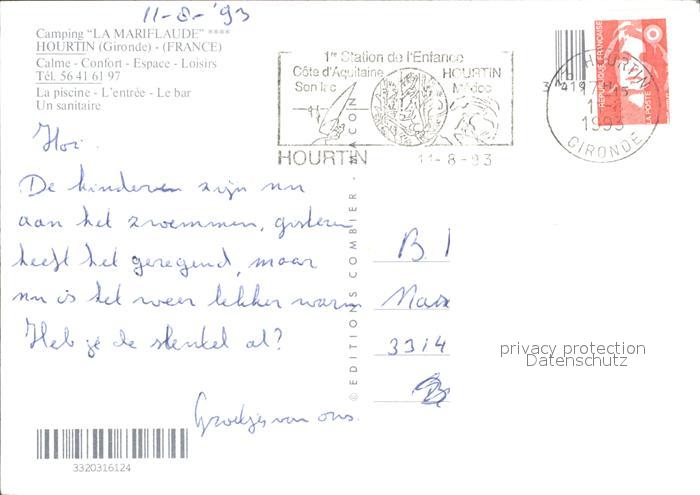 11-8-'93
Camping "LA MARIFLAUDE" ****
HOURTIN (Gironde) - (FRANCE)
Calme - Confort - Espace - Loisirs
Tél. 56 41 61 97
La piscine - L'entrée - Le bar
Un sanitaire
1re Station de l'Enfance
Côte d'Aquitaine HOURTIN
Son lac Médoc
HOURTIN 11-8-93
HOURTIN
17H15
1993
GIRONDE
REPUBLIQUE FRANÇAISE
LA POSTE
Hoi.
De kinderen zijn nu
aan het zwemmen, gisteren
heeft het geregend, maar
nu is het weer lekker warm
Heb je de sleutel al?
Groetjes van ons.
© EDITIONS COMBIER - MACON
B. I
3314
privacy protection
Datenschutz
3320316124